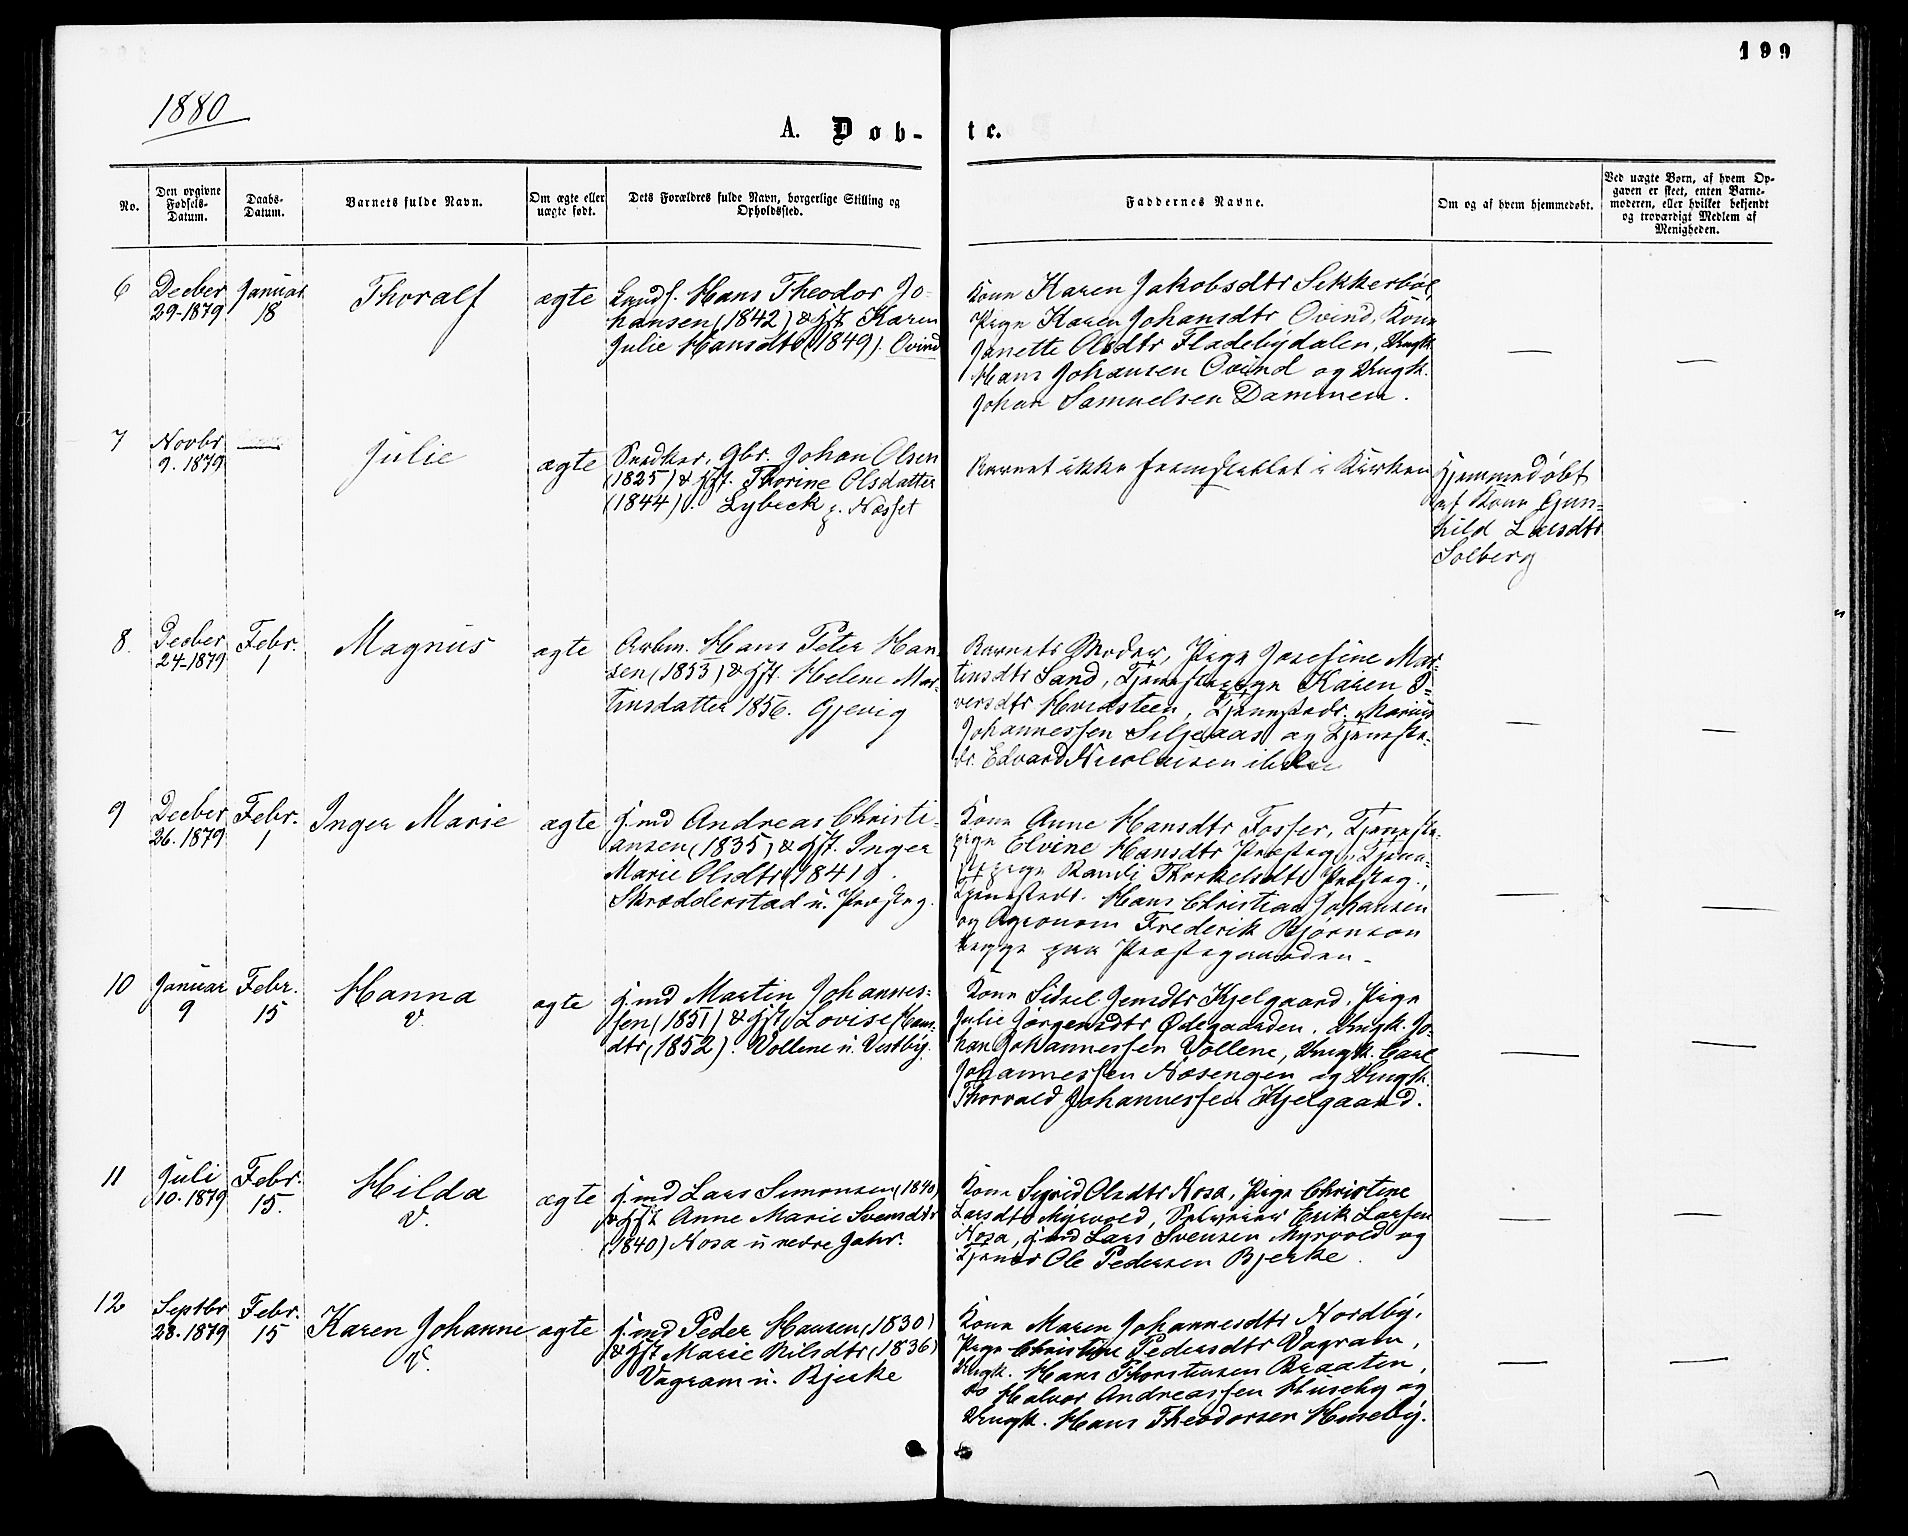 199
1880
A. Døb-
te.
No.
Den opgivne
Fødsels-
Datum.
Daabs-
Datum.
Barnets fulde Navn.
Om ægte eller
uægte født.
Dets Forældres fulde Navn, borgerlige Stilling og
Opholdssted.
Faddernes Navne.
Om og af hvem hjemmedøbt.
Ved uægte Børn, af hvem Op-
gaven er skeet, enten Barne-
moderen, eller hvilket bekjendt
og troværdigt Medlem af
Menigheden.
6
Decber
29-1879
Januar
18
Thoralf
ægte
Landh. Hans Theodor Jo-
hansen (1842) & Hst. Karen
Julie Hansdtr (1849). Ovind
Kone Karen Jakobsdtr Sikkerbøl,
Pige Karen Johansdtr Ovind, Kone
Janette Olsdtr Fladebydalen, Ungk.
Hans Johansen Ovind og Ungk.
Johan Samuelsen Dammen.
—
—
7
Novbr
9. 1879
—
Julie
ægte
Snedker, Gbr. Johan Olsen
(1825) & Hst. Thorine Olsdatter
(1844). Lybeck p. Næsset
Barnet ikke fremstillet i Kirken
Hjemmedøbt
af Kone Gun-
hild Larsdtr
Solberg
8.
Decber
24-1879
Febr.
1
Magnus
ægte
Arbm. Hans Peter Han-
sen (1853) & Hst. Helene Mar-
tinsdatter 1856. Gjevig
Barnets Moder, Pige Josefine Mar-
tinsdtr Sand, Tjenestepige Karen I-
versdtr Hvidsteen, Tjenestedr. Marius
Johannessen Siljeaas og Tjeneste-
dr. Edvard Nicolaisen
—
—
9
Decber
26. 1879
Febr.
1
Inger Marie
ægte
Hmd Andreas Christi-
ansen (1835) & Hst. Inger
Marie Olsdtr (1841).
Skrædderstad u. Præsteg.
Kone Anne Hansdtr Fosser, Tjeneste-
pige Elvine Hansdtr Præsteg., Tjene-
stepige Randi Thorkelsdtr Præsteg.,
Tjenestedr. Hans Christian Johansen
og Agronom Frederik Bjørnson
begge paa Præstegaarden.
—
—
10
Januar
9
Febr.
15
Hanna
V.
ægte
Hmd Martin Johannes-
sen (1851) & Hst. Lovise Hans-
dtr (1852). Vollene u. Vestby.
Kone Sidsel Jensdtr Kjelgaard, Pige
Julie Jørgensdtr Ødegaarden, Ungk. Jo-
han Johannessen Vollene, Ungk. Carl
Johannessen Næsengen og Ungk.
Thorvald Johannessen Kjelgaard.
—
—
11
Juli
10. 1879
Febr.
15.
Hilda
V.
ægte
Hmd Lars Simonsen (1840)
& Hst. Anne Marie Svensdtr
(1840) Nosa u nedre Jahr.
Kone Sigrid Olsdtr Nosa, Pige Christine
Larsdtr Myrvold, Selveier Erik Larsen
Nosa, Hmd Lars Svensen Myrvold og
Tjener Ole Pedersen Bjerke.
—
—
12
Septbr
28. 1879
Febr.
15
Karen Johanne
V.
ægte
Hmd Peder Hansen (1830)
& Hst Marie Nilsdtr (1836)
Vagram u. Bjerke
Kone Maren Johannesdtr Nordby,
Pige Christine Pedersdtr Vagram,
Ungk. Hans Thorstensen Braaten,
do Halvor Andreassen Huseby og
Ungk. Hans Theodorsen Huseby.
—
—